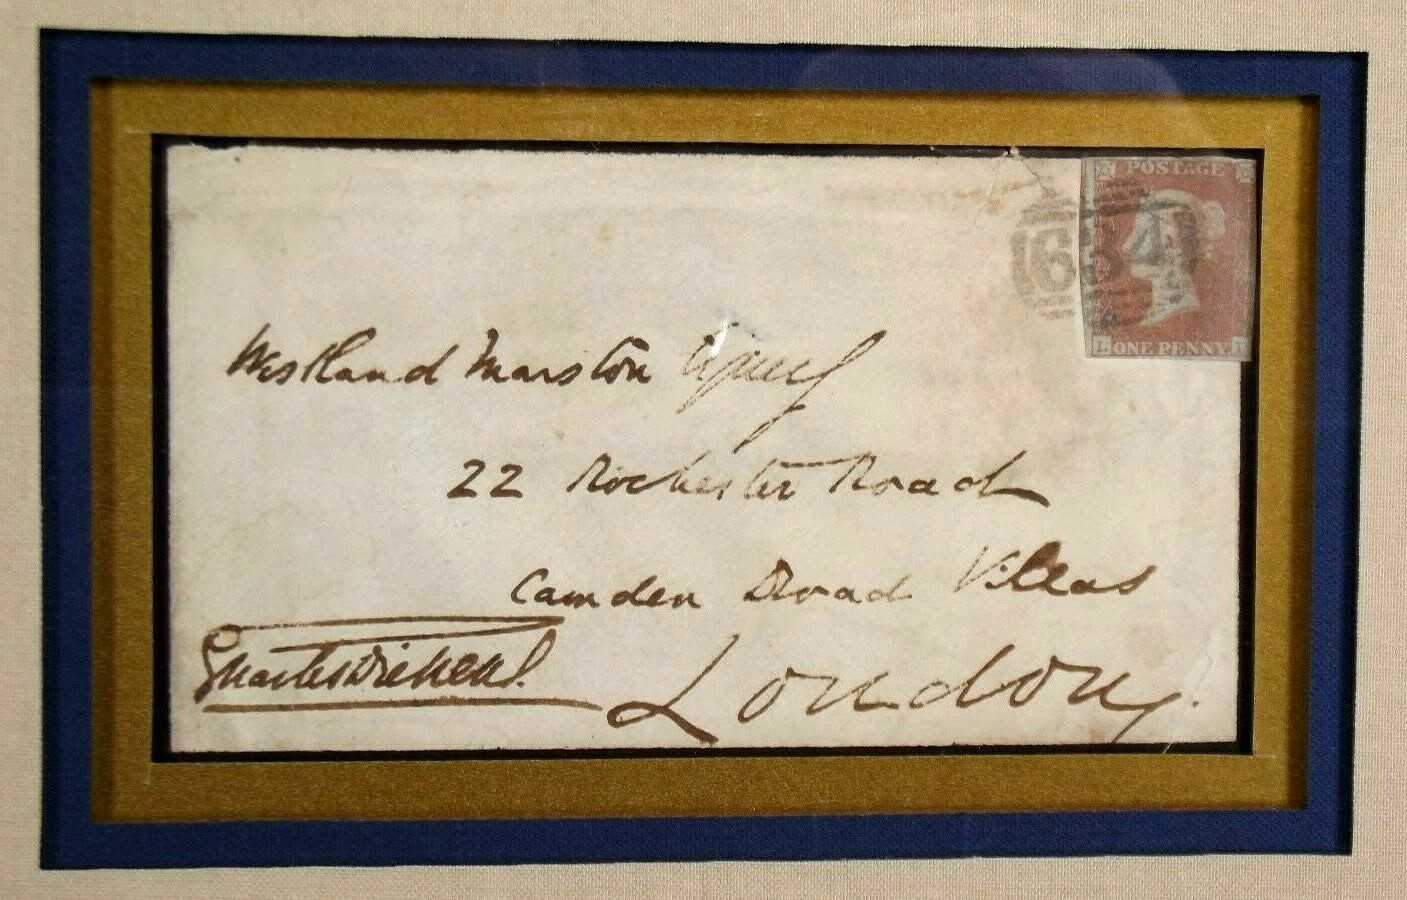 POSTAGE
634
L ONE PENNY I
Westland Marston Esquire
22 Rochester Road
Camden Road Villas
London.
Charles Dickens.